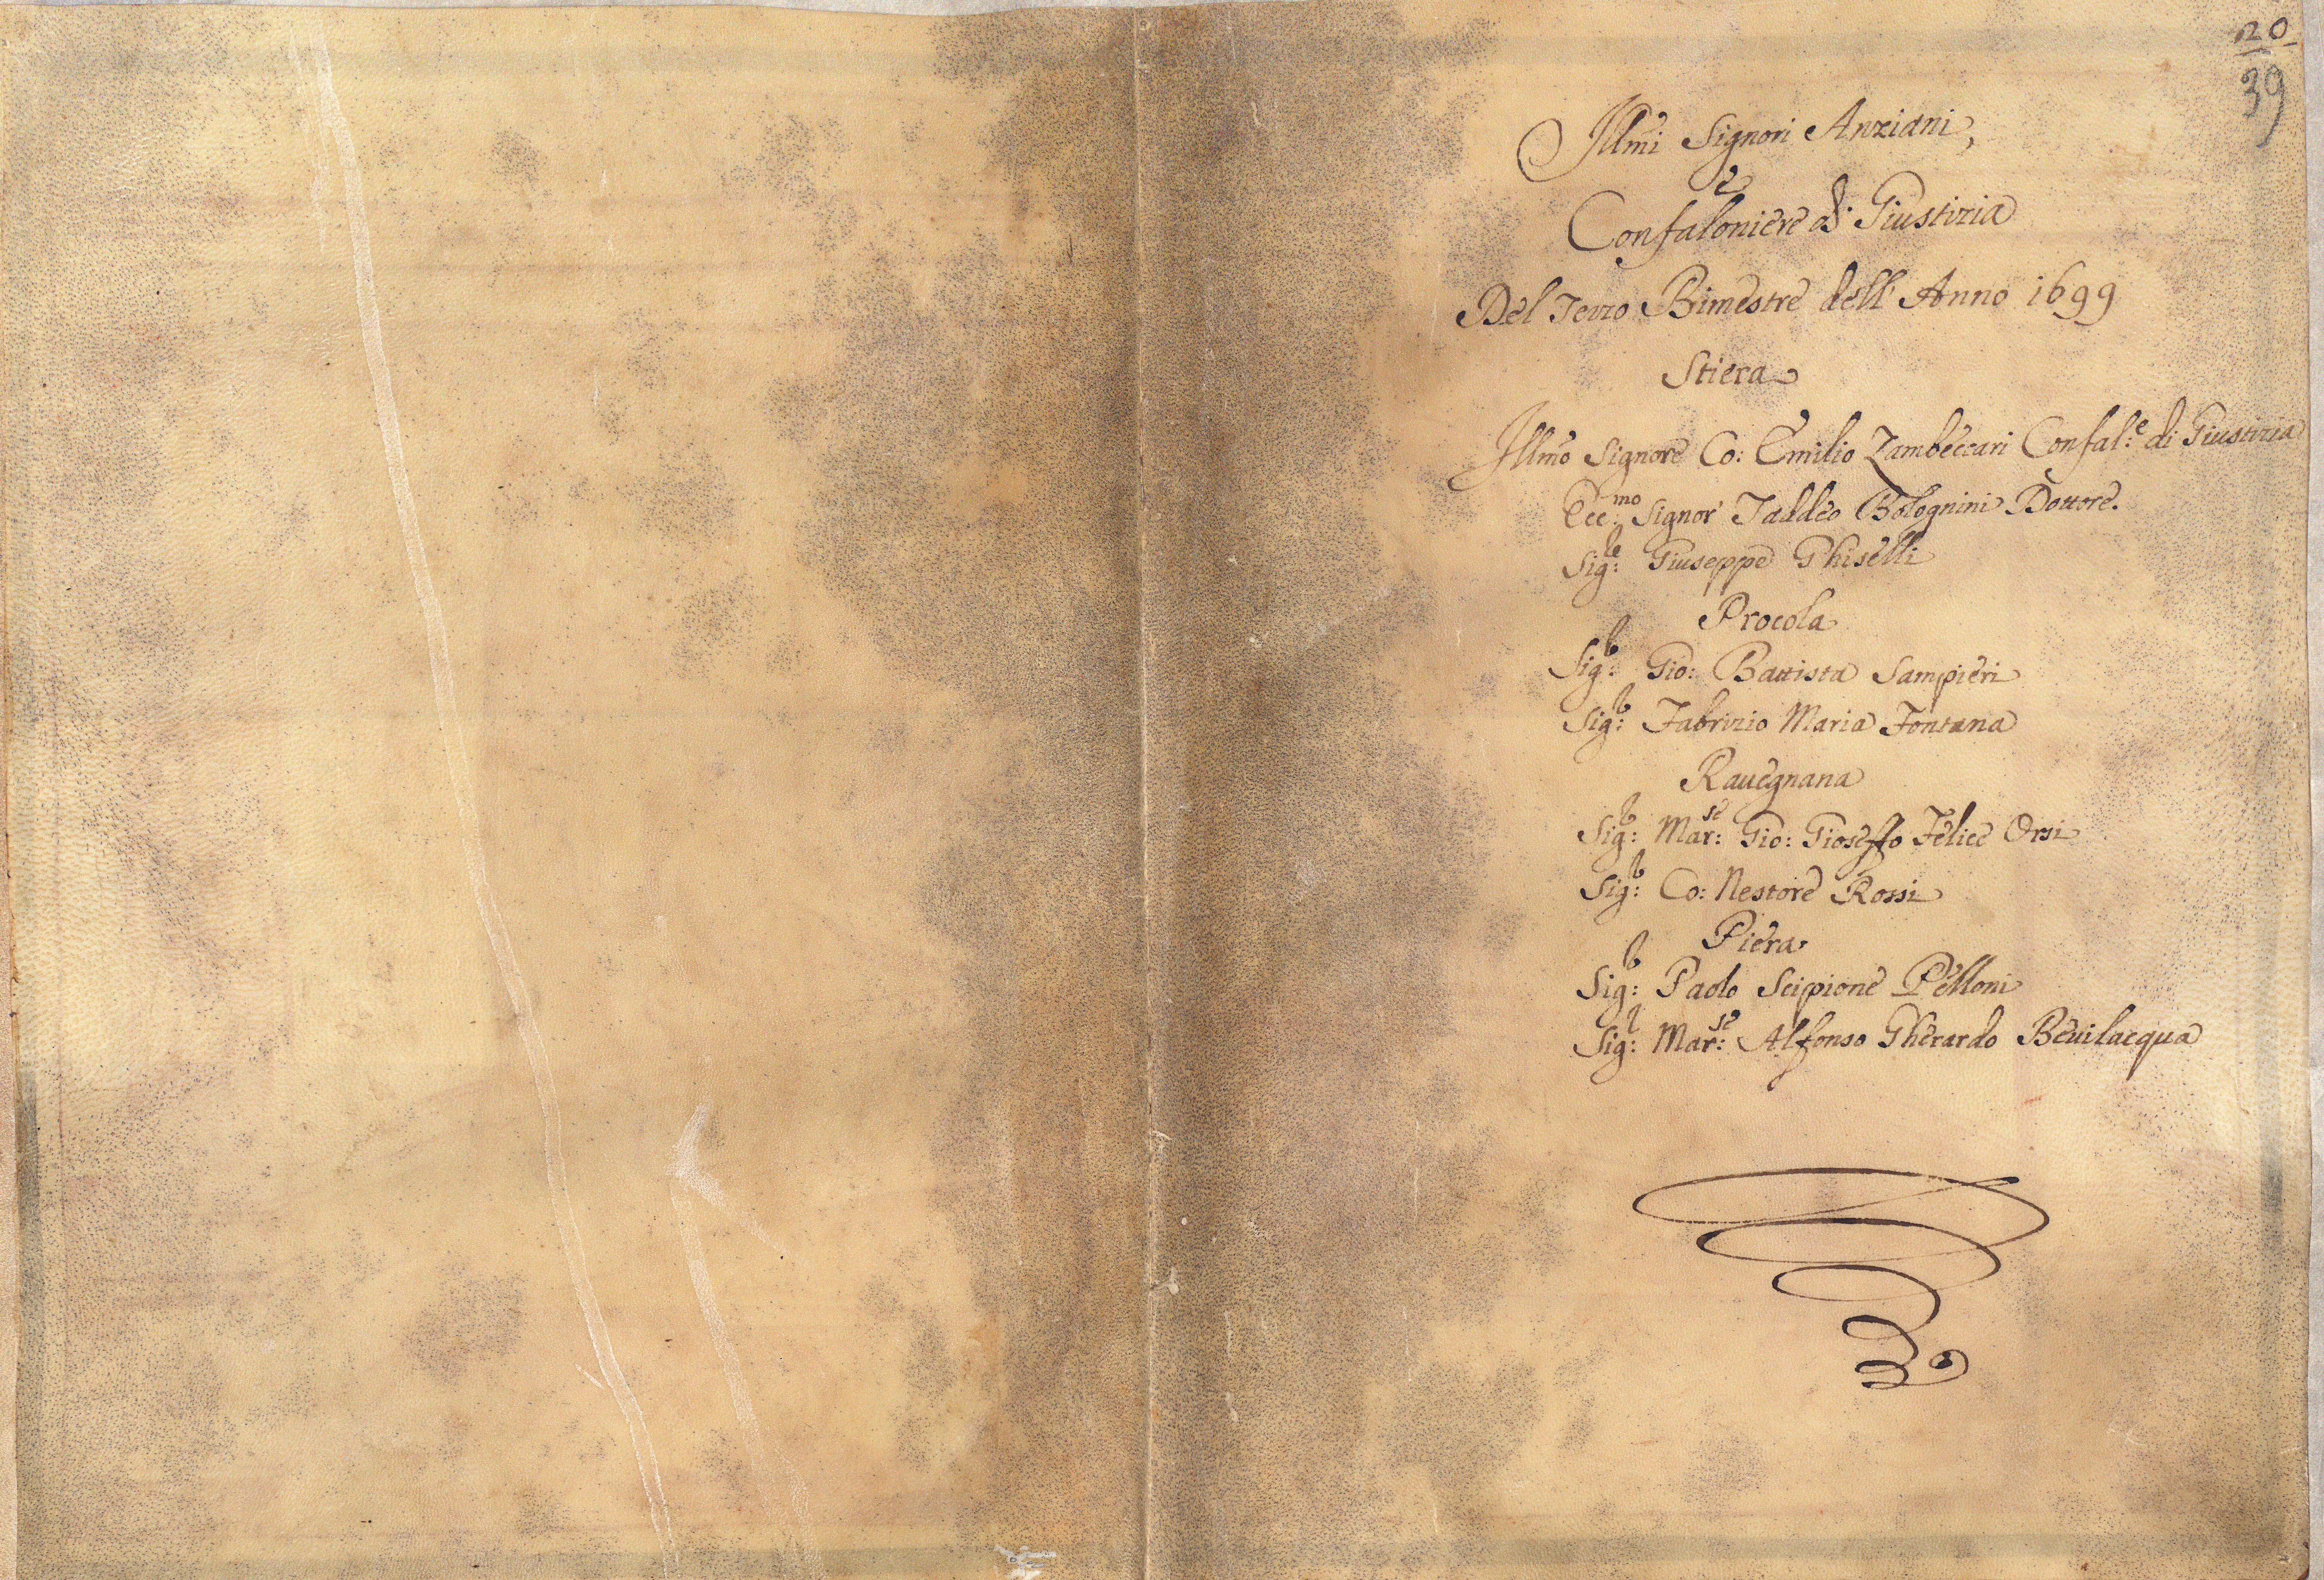 20
39
Illmi Signori Anziani,
e
Confaloniere di Giustizia
Del Terzo Bimestre dell' Anno 1699
Stiera
Illmo Signore Co: Emilio Zambeccari Confal:e di Giustizia
Ecc:mo Signor Taddeo Bolognini Dottore.
Sig:re Giuseppe Ghiselli
Procola
Sig:r Gio: Battista Sampieri
Sig:r Fabrizio Maria Fontana
Rauegnana
Sig:r Mar:se Gio: Gioseffo Felice Orsi
Sig:r Co: Nestore Rossi
Piera
Sig:r Paolo Scipione Pelloni
Sig:r Mar:se Alfonso Gherardo Beuilacqua